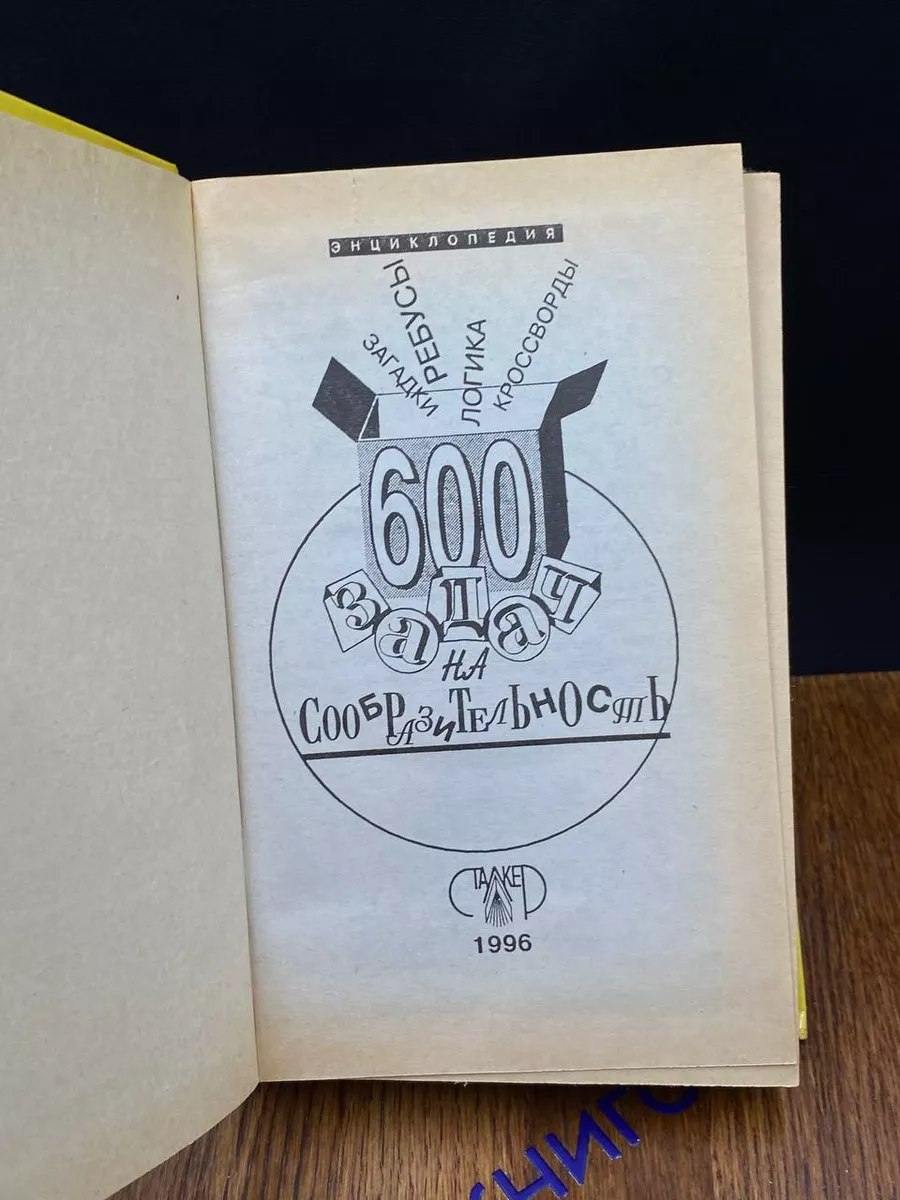 ЭНЦИКЛОПЕДИЯ
ЗАГАДКИ
РЕБУСЫ
ЛОГИКА
КРОССВОРДЫ
600
ЗАДАЧ
НА
СООБРАЗИТЕЛЬНОСТЬ
СТАЛКЕР
1996